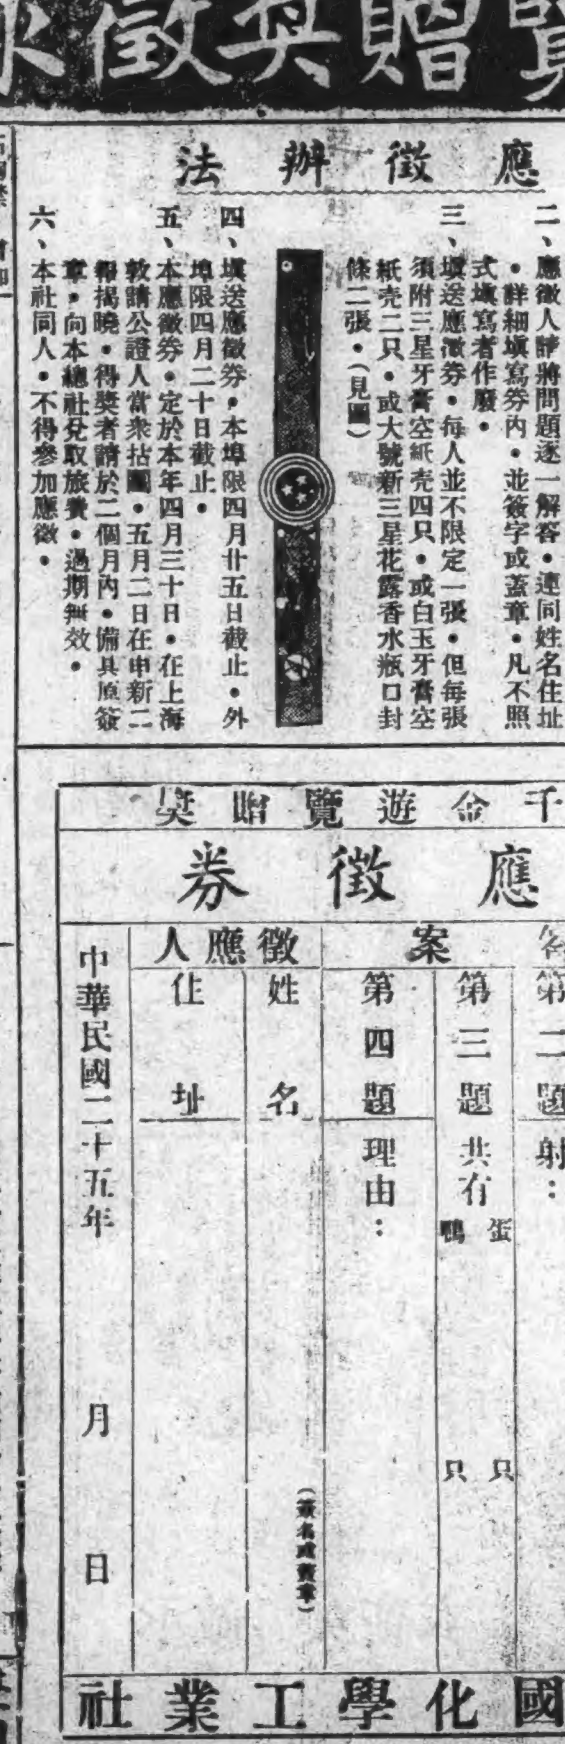 覽贈獎徵求
應徵辦法
二、應徵人請將問題逐一解答•連同姓名住址
•詳細填寫券內•並簽字或蓋章•凡不照
式填寫者作廢•
三、填送應徵券•每人並不限定一張•但每張
須附三星牙膏空紙壳四只•或白玉牙膏空
紙壳二只•或大號新三星花露香水瓶口封
條二張•(見圖)
四、填送應徵券•本埠限四月廿五日截止•外
埠限四月二十日截止•
五、本應徵券•定於本年四月三十日•在上海
敦請公證人當衆拈鬮•五月二日在申新二
報揭曉•得獎者請於二個月內•備具原簽
章•向本總社兌取旅費•過期無效•
六、本社同人•不得參加應徵•
千金遊覽贈獎
應徵券
答案
第二題
射：
第三題
共有
蛋 只
鴨 只
第四題
理由：
徵應人
姓名
(簽名或蓋章)
住址
中華民國二十五年 月 日
國化學工業社